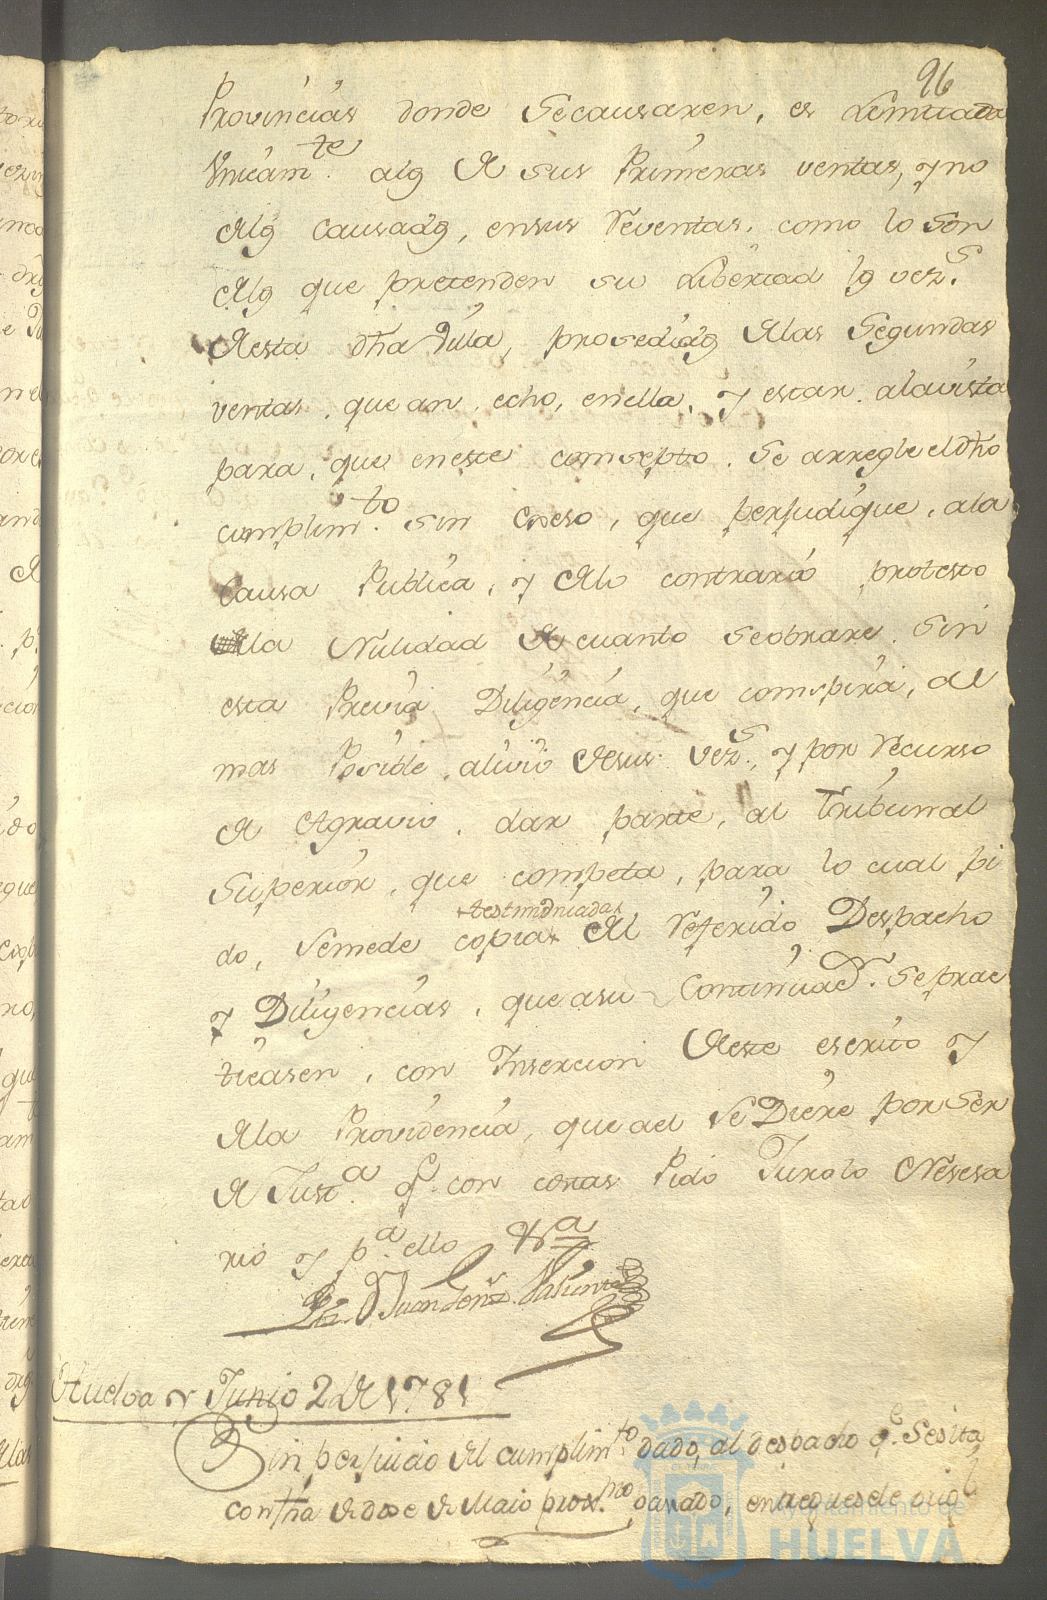 96
Provincias donde Secausaren, es Limitada
Vnicam.te alos de sus Primeras ventas, y no
delos causados, ensus Reventas, como lo son
delos que pretenden su Libertad los vez.s
desta dha Villa, prosedidos delas Segundas
ventas, que an echo, enella, y estan alavista
para, que eneste comsepto se arregle eldho
cumplim.to sin eseso, que perjudique, ala
Causa Publica, y delo contrario protesto
la Nulidad de cuanto seobrare sin
esta Previa Diligencia, que comspira, al
mas Posible alivio desus vez.s, y por recurso
de Agravio, dar parte, al Tribunal
Superior, que competa, para lo cual pi
do, Semede copias testimoniadas del Referido Despacho
y Diligencias, que asu Continuac.n Seprac
ticasen, con Insercion deste escrito y
dela Providencia, que ael Se Diere por Ser
de Just.a q. con costas Pido Juro lo Nesesa
rio y p.a ello &.a
D Juan
Huelva y Junio 2 de 1781
Sin perjuicio del cumplim.to dado, al despacho q.e Sesita
con fha de doze de Maio prox.mo pasado, entreguesele orig.l
Ayuntamiento de
HUELVA